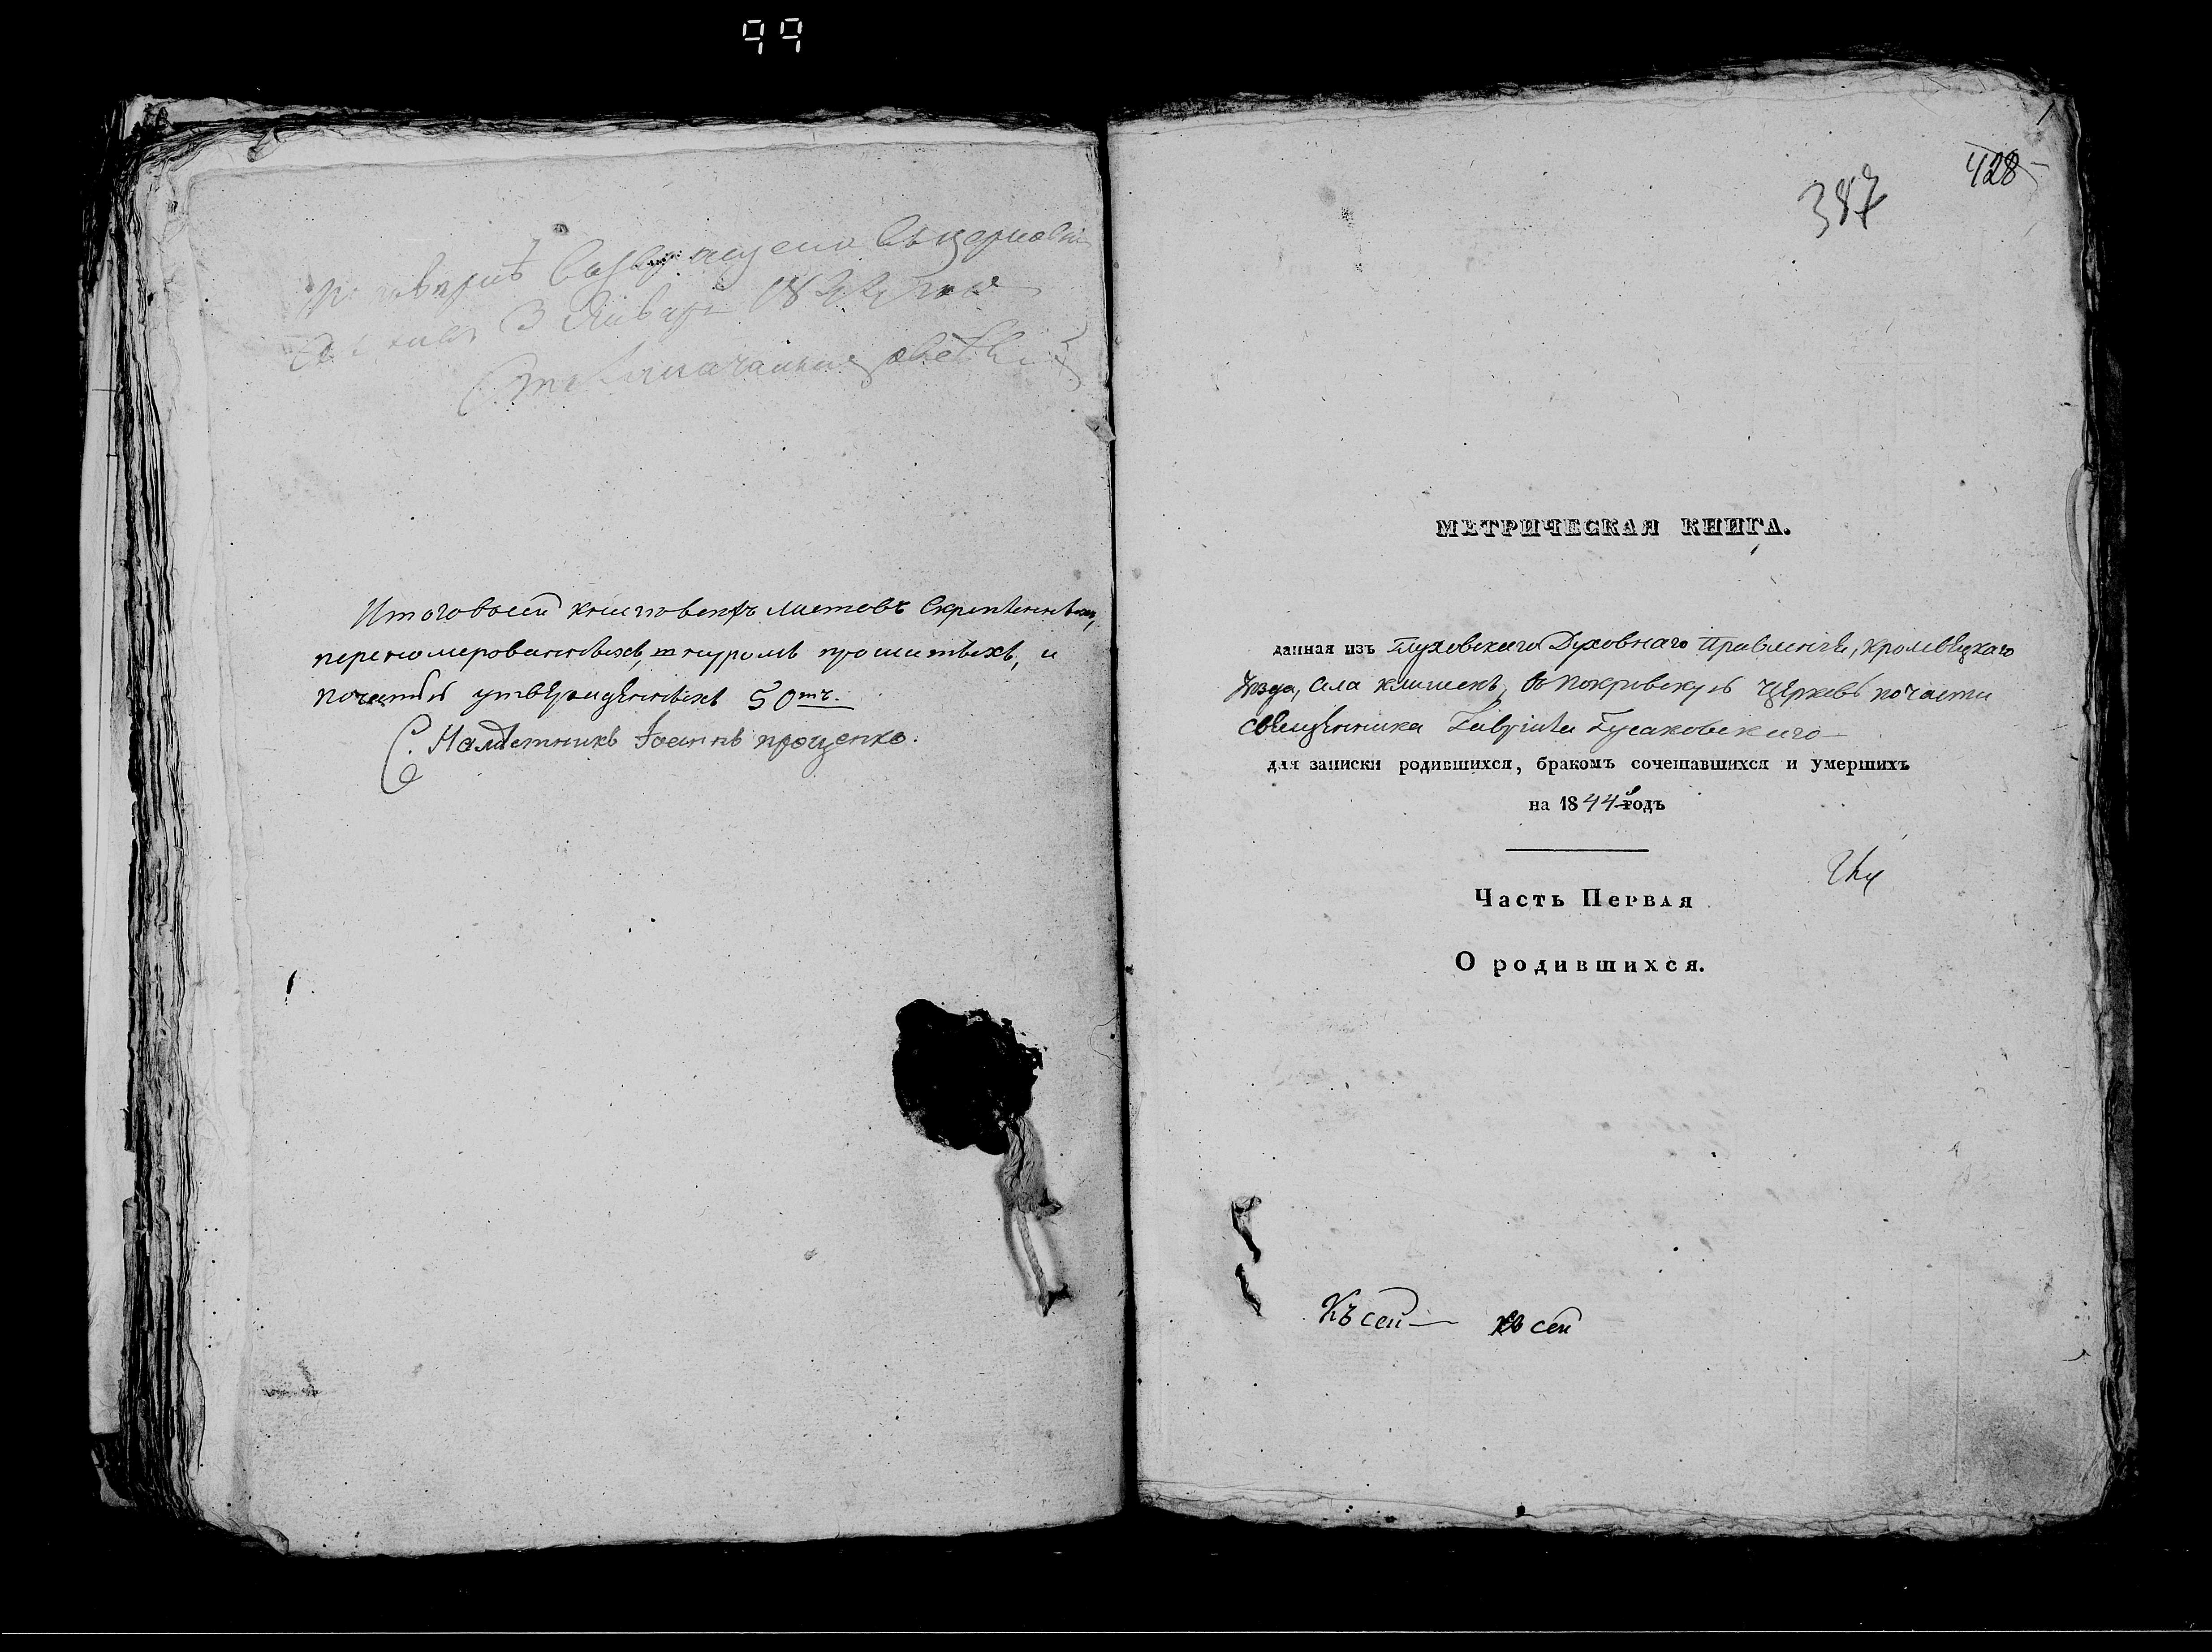 99
3 Января 1844 года
Итого во всей книге листовъ скрепленныхъ,
перенумерованныхъ, шнуромъ прошитыхъ, и
печатью утвержденныхъ 50тъ.
С. Наместникъ Іоаннъ Проценко.
1
428
387
МЕТРИЧЕСКАЯ КНИГА.
данная изъ Глуховскаго Духовнаго Правленія, Кролевецкаго
уезда, села Клишекъ, въ Покровскую Церковь по части
священника Гавриила Гусаковскаго
для записки родившихся, бракомъ сочетавшихся и умершихъ
на 1844й годъ
Часть Первая
О родившихся.
Къ сей къ сей